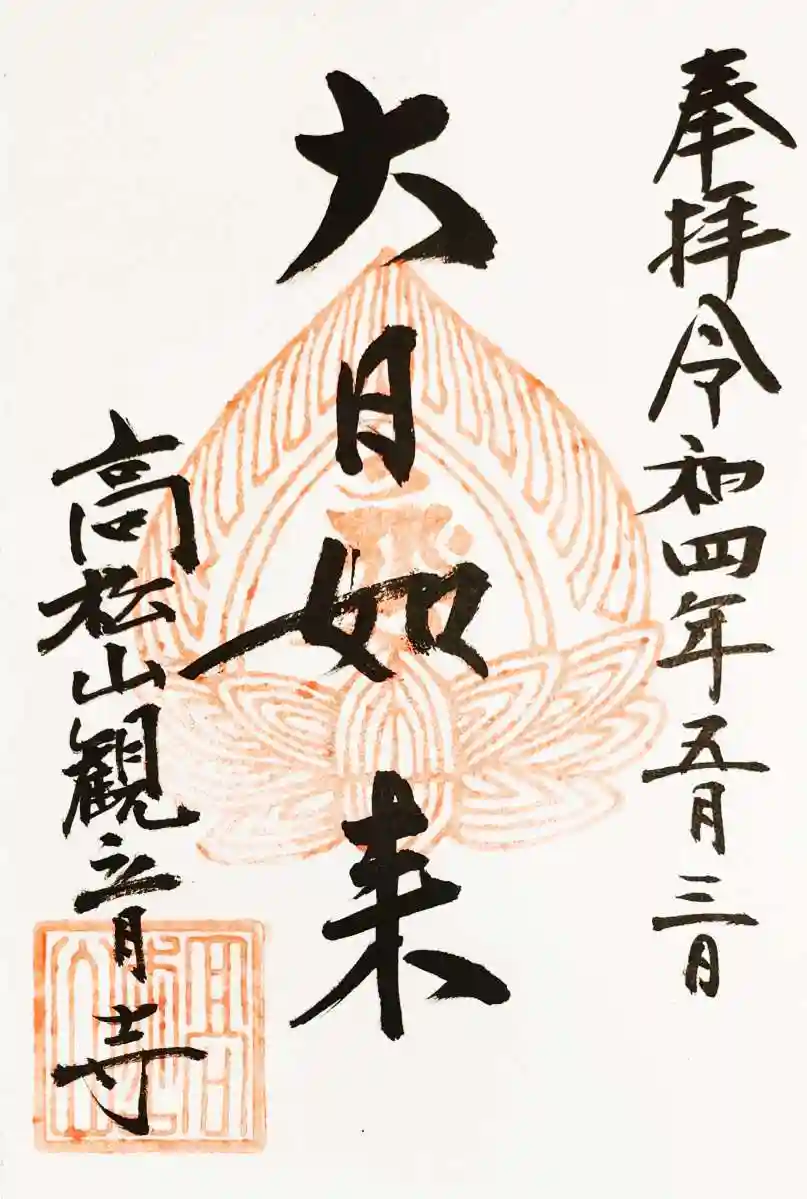 奉拝令和四年五月三日
大日如来
高松山観音寺